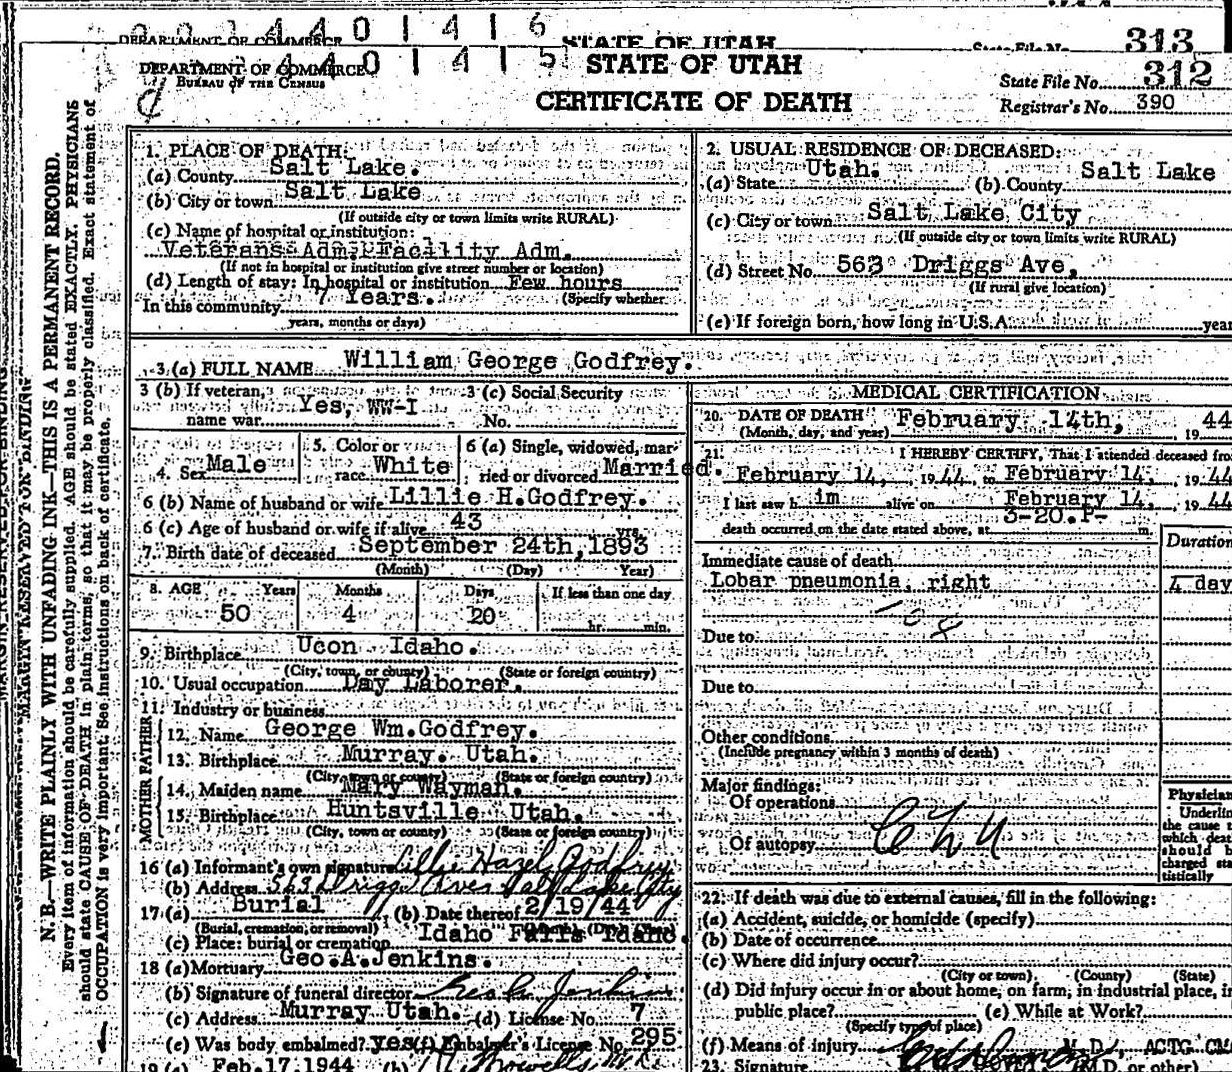 4 4 0 1 4 1 6
DEPARTMENT OF COMMERCE STATE OF UTAH State File No. 313
4 0 1 4 1 5
DEPARTMENT OF COMMERCE STATE OF UTAH
BUREAU OF THE CENSUS State File No. 312
CERTIFICATE OF DEATH Registrar's No. 390
MARGIN RESERVED FOR BINDING
N. B.—WRITE PLAINLY WITH UNFADING INK—THIS IS A PERMANENT RECORD.
Every item of information should be carefully supplied. AGE should be stated EXACTLY. PHYSICIANS
should state CAUSE OF DEATH in plain terms, so that it may be properly classified. Exact statement of
OCCUPATION is very important. See instructions on back of certificate.
1. PLACE OF DEATH:
(a) County Salt Lake.
(b) City or town Salt Lake
(If outside city or town limits write RURAL)
(c) Name of hospital or institution:
Veterans Adm. Facility Adm.
(If not in hospital or institution give street number or location)
(d) Length of stay: In hospital or institution Few hours
(Specify whether
In this community 7 Years.
years, months or days)
2. USUAL RESIDENCE OF DECEASED:
(a) State Utah. (b) County Salt Lake
(c) City or town Salt Lake City
(If outside city or town limits write RURAL)
(d) Street No. 563 Driggs Ave,
(If rural give location)
(e) If foreign born, how long in U.S.A. year
3 (a) FULL NAME William George Godfrey.
3 (b) If veteran, name war Yes, WW-I
3 (c) Social Security No.
4. Sex Male
5. Color or race White
6 (a) Single, widowed, married or divorced Married.
6 (b) Name of husband or wife Lillie H.Godfrey.
6 (c) Age of husband or wife if alive 43 yrs.
7. Birth date of deceased September 24th,1893
(Month) (Day) Year)
8. AGE Years Months Days If less than one day
50 4 20 hr. min.
9. Birthplace Ucon Idaho.
(City, town, or county) (State or foreign country)
10. Usual occupation Day Laborer.
11. Industry or business
FATHER
12. Name George Wm.Godfrey.
13. Birthplace Murray. Utah.
(City, town or county) (State or foreign country)
MOTHER
14. Maiden name Mary Wayman.
15. Birthplace Huntsville Utah.
(City, town or county) (State or foreign country)
16 (a) Informant's own signature Lillie Hazel Godfrey
(b) Address 563 Driggs Ave Salt Lake City
17 (a) Burial (b) Date thereof 2/19/44
(Burial, cremation, or removal)
(c) Place: burial or cremation Idaho Falls Idaho.
18 (a) Mortuary Geo.A.Jenkins.
(b) Signature of funeral director Geo A Jenkins
(c) Address Murray Utah. (d) License No. 7
(e) Was body embalmed? Yes (f) Embalmer's License No. 295
19 (a) Feb.17.1944 (b)
MEDICAL CERTIFICATION
20. DATE OF DEATH February 14th, 19 44
(Month, day, and year)
21. I HEREBY CERTIFY, That I attended deceased from
February 14, 19 44, to February 14, 19 44
I last saw h im alive on February 14, 19 44
death occurred on the date stated above, at 3-20.P- m.
Duration
Immediate cause of death
Lobar pneumonia, right 4 day
108
Due to
Due to
Other conditions
(Include pregnancy within 3 months of death)
Major findings:
Of operations
Of autopsy
Physician
Underlin
the cause
which deat
should b
charged sta
tistically
22. If death was due to external causes, fill in the following:
(a) Accident, suicide, or homicide (specify)
(b) Date of occurrence
(c) Where did injury occur?
(City or town) (County) (State)
(d) Did injury occur in or about home, on farm, in industrial place, in
public place? (e) While at Work?
(Specify type of place)
(f) Means of injury
23. Signature M.D., ACTG CM
(M.D. or other)